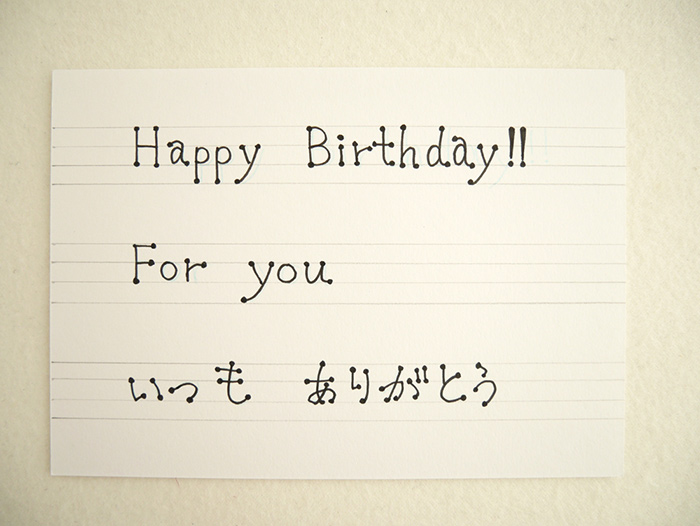 Happy Birthday!!
For you
いつも ありがとう